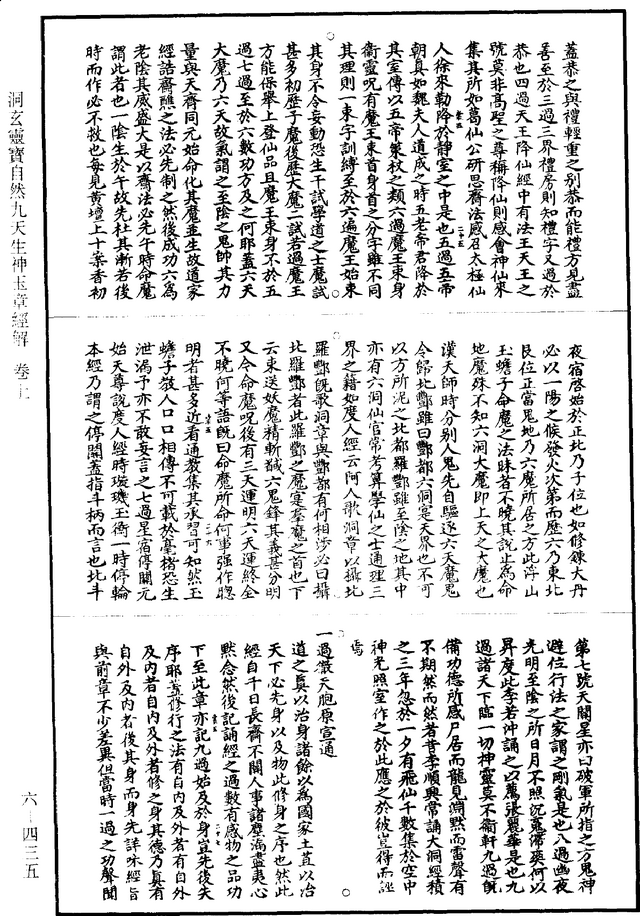 蓋恭之與禮輕重之別恭而能禮方見盡
善至於三過三界禮房則知禮字又過於
恭也四過天王降仙經中有法王天王之
號莫非高聖之尊稱降仙則感會神仙來
集其所如葛仙公研思齋法感召太極仙
人徐來勒降於靜室之中是也五過五帝
朝真如魏夫人道成之時五老帝君降於
其室傳以五帝策杖之類六過魔王束身
衛靈呪有魔王束首身首之分字雖不同
其理則一束字訓縛至於六過魔王始束
其身不令妄動恐生干試學道之士魔試
甚多初歷子魔後歷大魔二試若過魔王
方能保舉上登仙品且魔王束身不於五
過七過至於六數功方及之何耶蓋六天
大魔乃六天故氣謂之至陰之鬼帥其力
量與天齊同元始命化其魔並生故道家
經誥齋醮之法必先制之然後成功六為
老陰其威盛大是以齋法必先午時命魔
謂此者也一陰生於午故先杜其漸若後
時而作必不救也每見黃壇上十案香初
夜宿啓始於正北乃子位也如修鍊大丹
必以一陽之候發火次第而歷六乃東北
艮位正當鬼地乃六魔所居之方此浮山
玉蟾子命魔之法昧者不曉其說止為命
地魔殊不知六洞大魔即上天之大魔也
漢天師時分別人鬼先自驅逐六天魔鬼
令歸北酆雖曰酆都六洞宮天界也不可
以方所泥之北都羅酆雖至陰之地其中
亦有六洞仙官常考筭學仙之士通理三
界之籍如度人經云阿人歌洞章以攝北
羅酆既歌洞章與酆都有何相涉必曰攝
北羅酆者此羅酆之魔宮羣魔之首也下
云束送妖魔精斬馘六鬼鋒其義甚分明
又令命魔呪後有三天運明六天運終全
不曉何等語既曰命魔所命何事強作聰
明者甚多近看通教集其承習可知然玉
蟾子教人口口相傳不可載於毫楮恐生
泄漏予亦不敢妄言之七過星宿停關元
始天尊說度人經時琁璣玉衡一時停輪
本經乃謂之停關蓋指斗柄而言也北斗
第七號天關星亦曰破軍所指之方鬼神
避位行法之家謂之剛氣是也八過幽夜
光明至陰之所日月不照沉魂滯魄何以
昇度此李若沖誦之以薦張麗華是也九
過諸天下臨一切神靈莫不衛軒九過既
備功德所感尸居而龍見淵默而雷聲有
不期然而然者昔李順興常誦大洞經積
之三年忽於一夕有飛仙千數集於空中
神光照室作之於此應之於彼豈得而誣
焉
一過徹天胞原宣通
道之真以治身諸餘以為國家土苴以治
天下必先身以及物此修身之序也然此
經自千日長齋不關人事諸塵漏盡夷心
默念然後記誦經之過數有感物之品功
下至此章亦記九過始及於身宣先後失
序耶蓋修行之法有自內及外者有自外
及內者自內及外者修之身其德乃真有
自外及內者後其身而身先詳味經旨
與前章不少差異但當時一過之功聲聞
洞玄靈寶自然九天生神玉章經解　卷上
六－四三五